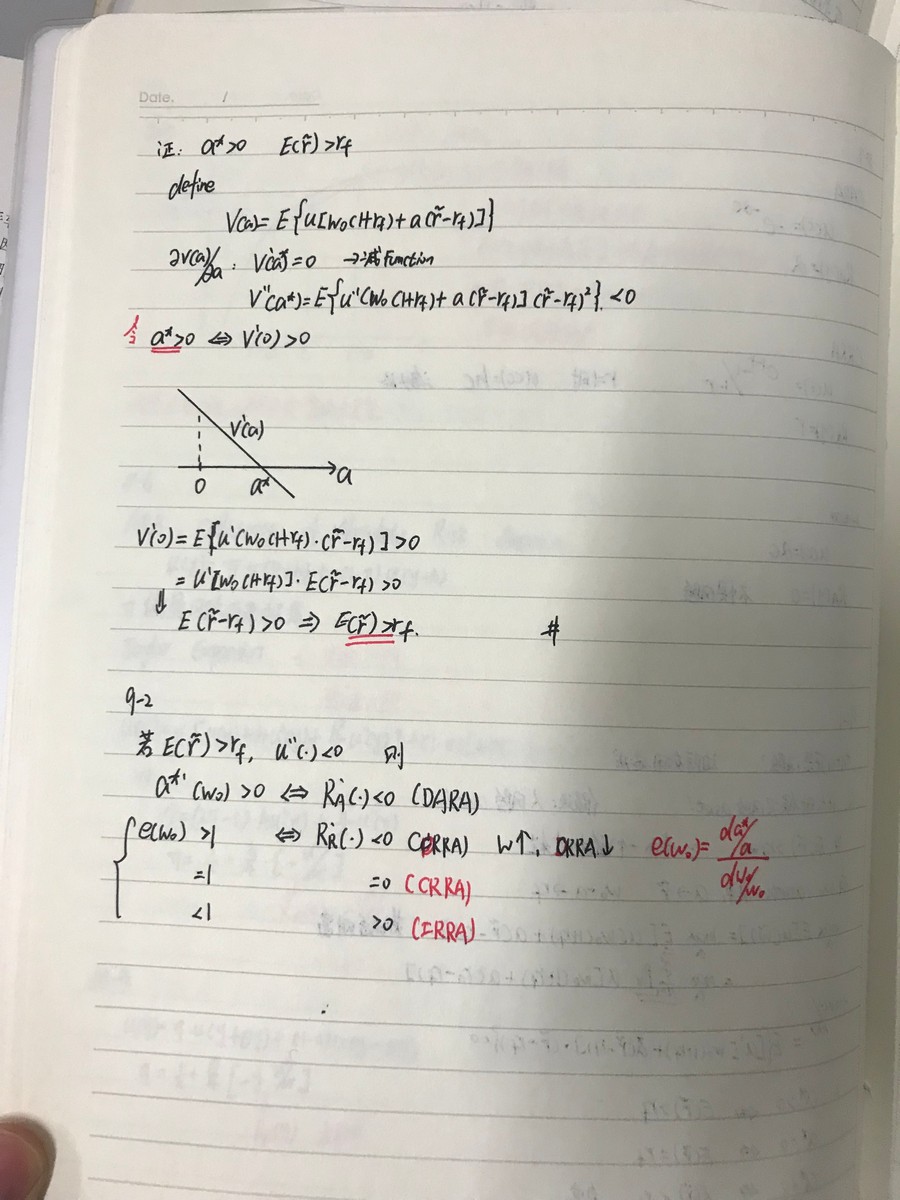 Date. /
证: a*>0 E(r̃)>rf
define
V(a)= E{u[w0(1+rf)+a(r̃-rf)]}
∂v(a)/∂a : V'(a*)=0 →减function
V''(a*)=E{u''(w0(1+rf)+a(r̃-rf)](r̃-rf)²}<0
令 a*>0 ⇔ V'(0)>0
V'(a)
0 a* a
V'(0)=E[u'(w0(1+rf)·(r̃-rf)]>0
=u'[w0(1+rf)]·E(r̃-rf)>0
⇓
E(r̃-rf)>0 ⇒ E(r̃)>rf. #
9-2
若E(r̃)>rf, u''(·)<0 则
a*'(w0)>0 ⇔ RA'(·)<0 (DARA)
{ e(w0) >1 ⇔ RR'(·)<0 (DRRA) W↑, DRRA↓ e(w0)= da*/a / dw/w0
=1 =0 (CRRA)
<1 >0 (IRRA)